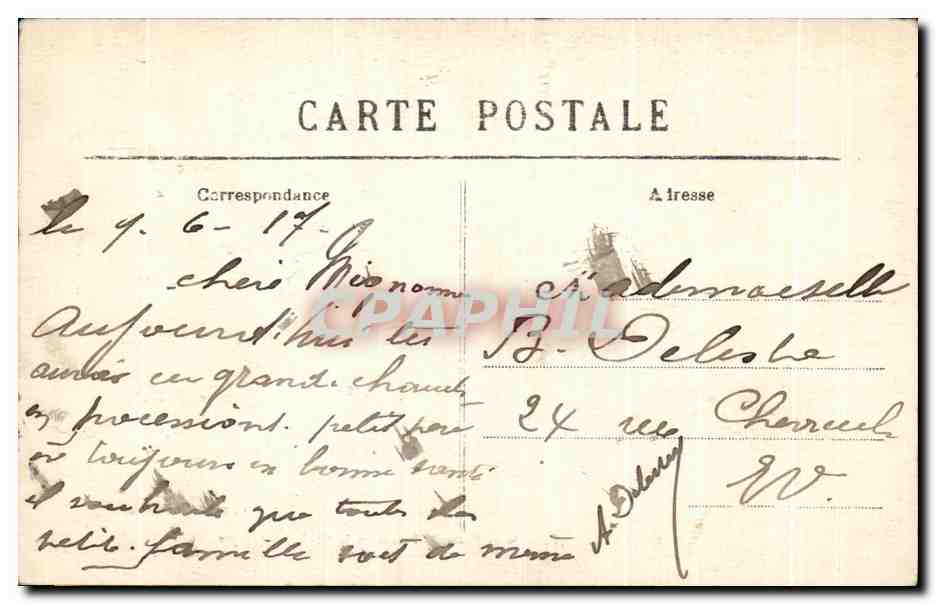 CARTE POSTALE
Correspondance
Adresse
le 9. 6 - 17.
chère Mignonne
Aujourd'hui les
grande
en procession. petit père
est toujours en bonne santé
il souhaite que toute la
petite famille soit de même
A.
Mademoiselle
B. Deleste
24 rue Chevreul
EV.
CPAPHIL